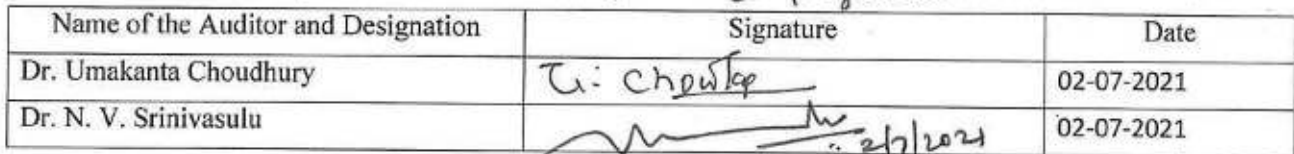 Name of the Auditor and Designation Signature Date
Dr. Umakanta Choudhury 02-07-2021
Dr. N. V. Srinivasulu 2/7/2021 02-07-2021